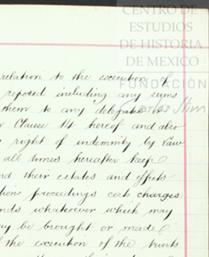 CENTRO DE
ESTUDIOS
DE HISTORIA
DE MEXICO
FUNDACIÓN
Carlos Slim
relation to the execution of
reposed including any sums
them to any delegate
Clause 14 hereof and also
right of indemnity by Law
all times hereafter keep
and their estates and effects
proceedings costs charges
whatsoever which may
be brought or made
the execution of the trusts